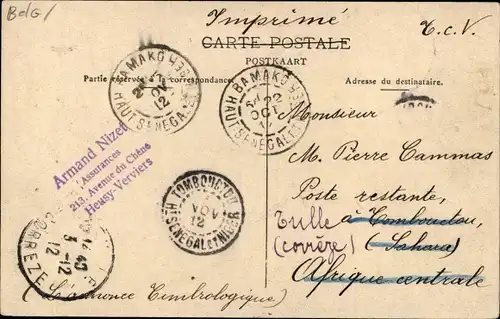 BelG/
Imprimé
T.C.V.
CARTE POSTALE
POSTKAART
Partie réservée à la correspondance
Adresse du destinataire.
BAMAKO
HAUT SÉNÉGAL
12
BAMAKO
22
OCT
HAUT SÉNÉGAL
Armand Nizet
Assurances
213, Avenue du Chêne
Heusy-Verviers
TOMBOUCTOU
NOV
12
HT SENEGAL ET NIGER
Monsieur
M. Pierre Cammas
Poste restante,
Tulle
à Tombouctou,
(Corrèze)
(Sahara)
Afrique centrale
40
3-12
12
CORREZE
(L'annonce Timbrologique)